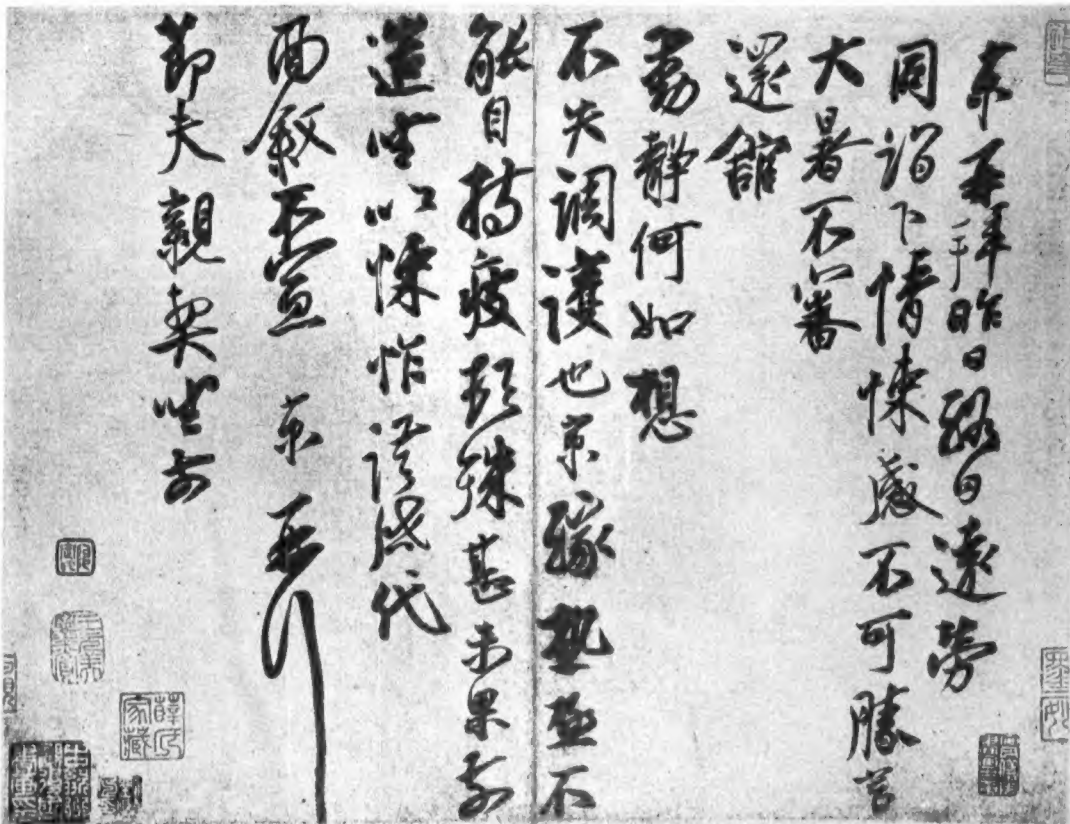 京再拜昨日終日遠勞
同詣下情悚感不可勝言
大暑不審
還館
動靜何如想
不失調護也京緣熱極不
能自持疲頓殊甚未果前
造坐以悚怍謹啟代
面敘不宣 京再拜
節夫親契坐前
薛氏家藏